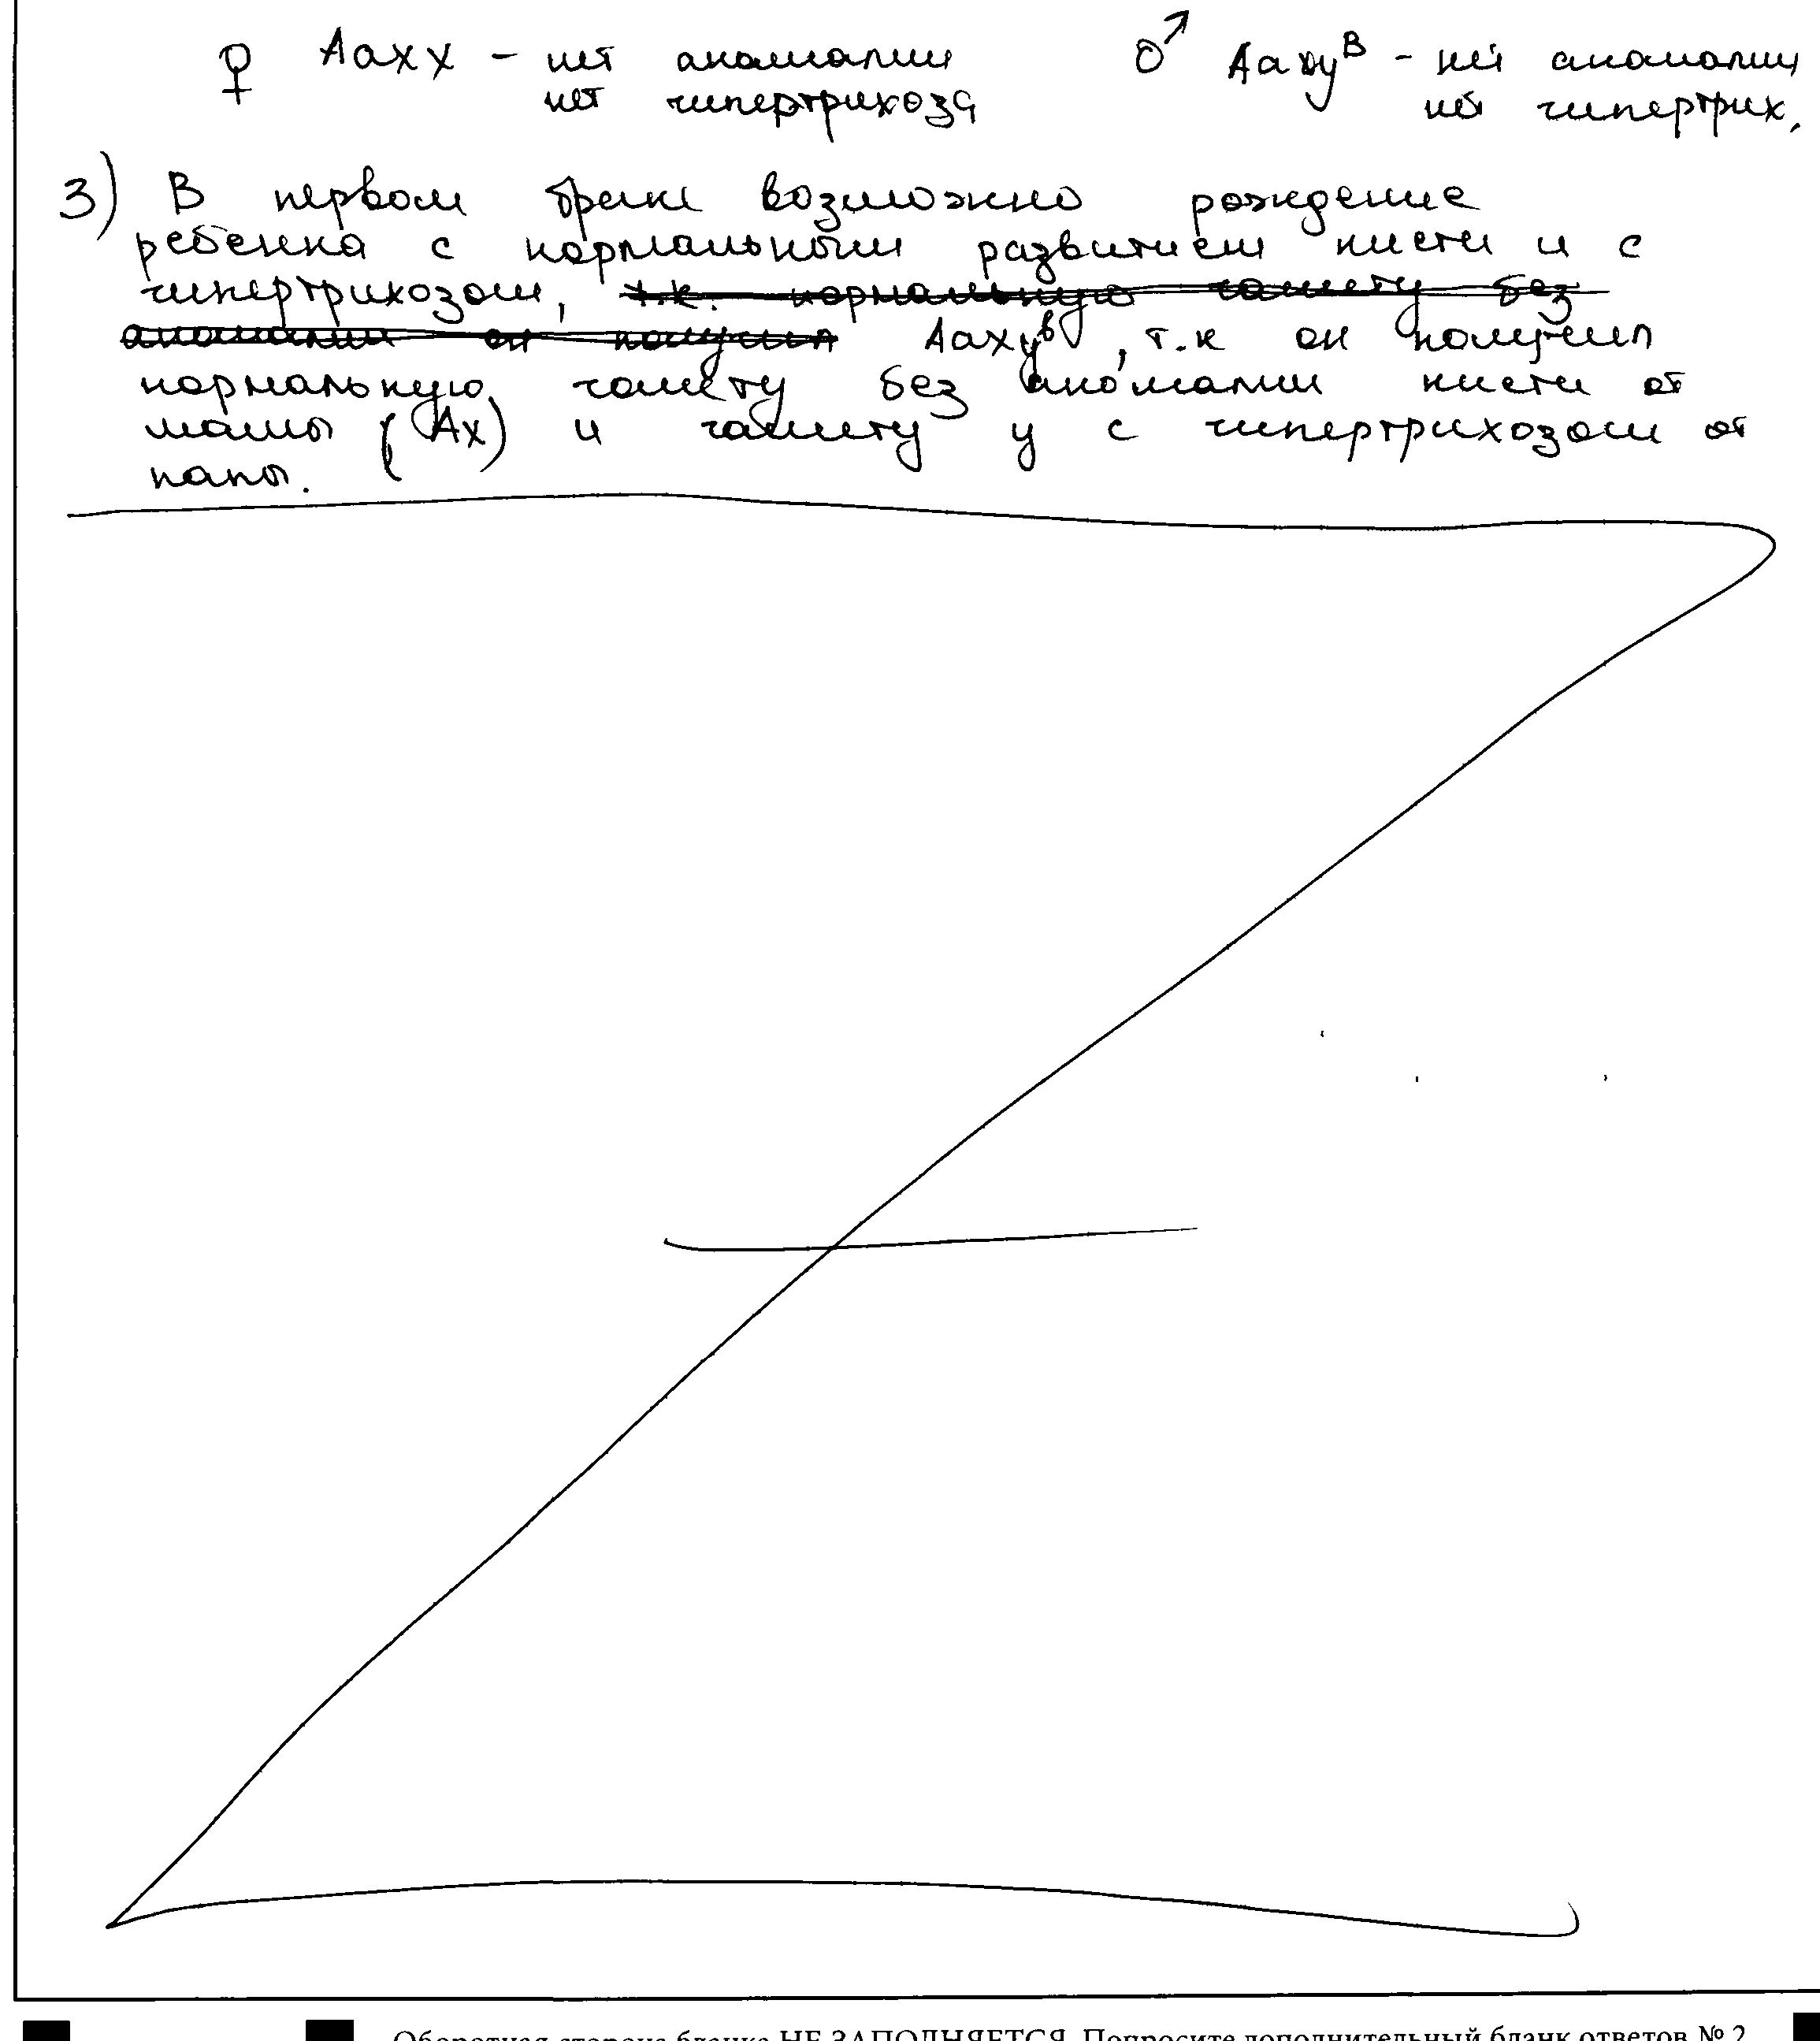 ♀ Aaxx - нет аномалии ♂ Aaxy^B - нет аномалии
нет гипертрихоза нет гипертрих.
3) В первом браке возможно рождение
ребенка с нормальным развитием кисти и с
гипертрихозом, т.к. нормальную гамету без
аномалии он получил Aaxy^b, т.к он получил
нормальную гамету без аномалии кисти от
мамы (Ax) и гамету y с гипертрихозом от
папы.
Оборотная сторона бланка НЕ ЗАПОЛНЯЕТСЯ. Попросите дополнительный бланк ответов № 2